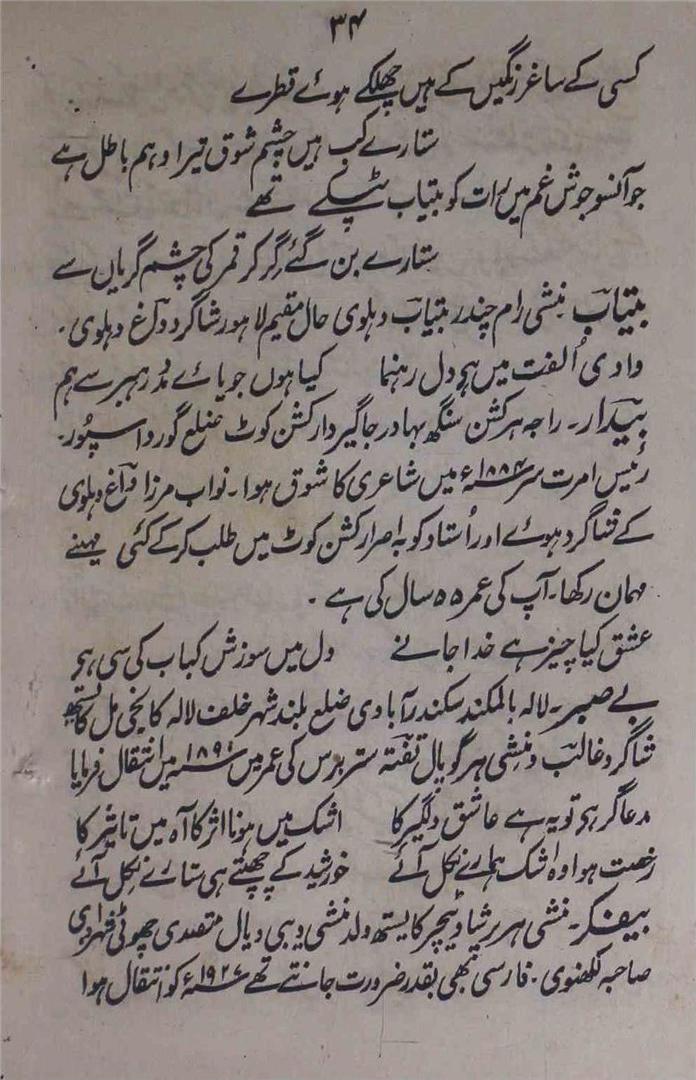 ۳۴
کسی کے ساغر رنگیں کے ہیں چھلکے ہوئے قطرے
ستارے کب ہیں چشم شوق تیرا وہم باطل ہے
جو آنسو جوش غم میں رات کو بیتاب ٹپکے تھے
ستارے بن گئے گر کر قمر کی چشم گریاں سے
بیتاب منشی رام چندر بیتاب دہلوی حال مقیم لاہور شاگرد داغ دہلوی۔
وادی اُلفت میں ہی دل رہنما کیا ہوں جویائے مدد رہبر سے ہم
بیدار۔ راجہ ہر کشن سنگھ بہادر جاگیردار کشن کوٹ ضلع گورداسپور۔
رئیس امرت سر ۱۸۸۴ء میں شاعری کا شوق ہوا۔ نواب مرزا داغ دہلوی
کے شاگرد ہوئے اور اُستاد کو بہ اصرار کشن کوٹ میں طلب کر کے کئی مہینے
مہمان رکھا۔ آپ کی عمر ۵۵ سال کی ہے۔
عشق کیا چیز ہے خدا جانے دل میں سوزش کباب کی سی ہی
بے صبر۔ لالہ بالمکند سکندرآبادی ضلع بلند شہر خلف لالہ کانجی مل کایستھ
شاگرد غالب و منشی ہرگوپال تفتہ ستر برس کی عمر میں ۱۸۹۱ء میں انتقال فرمایا
مدعا گر ہی تو یہ ہے عاشق دلگیر کا اشک میں ہونا اثر کا آہ میں تاثیر کا
رخصت ہوا وہ اشک ہمارے نکل آئے خورشید کے چھپتے ہی ستارے نکل آئے
بیفکر۔ منشی ہر پرشاد ٹیچر کایستھ ولد منشی دیبی دیال متصدی چھوٹی
صاحبہ لکھنوی۔ فارسی بھی بقدر ضرورت جانتے تھے ۱۹۲۷ء کو انتقال ہوا